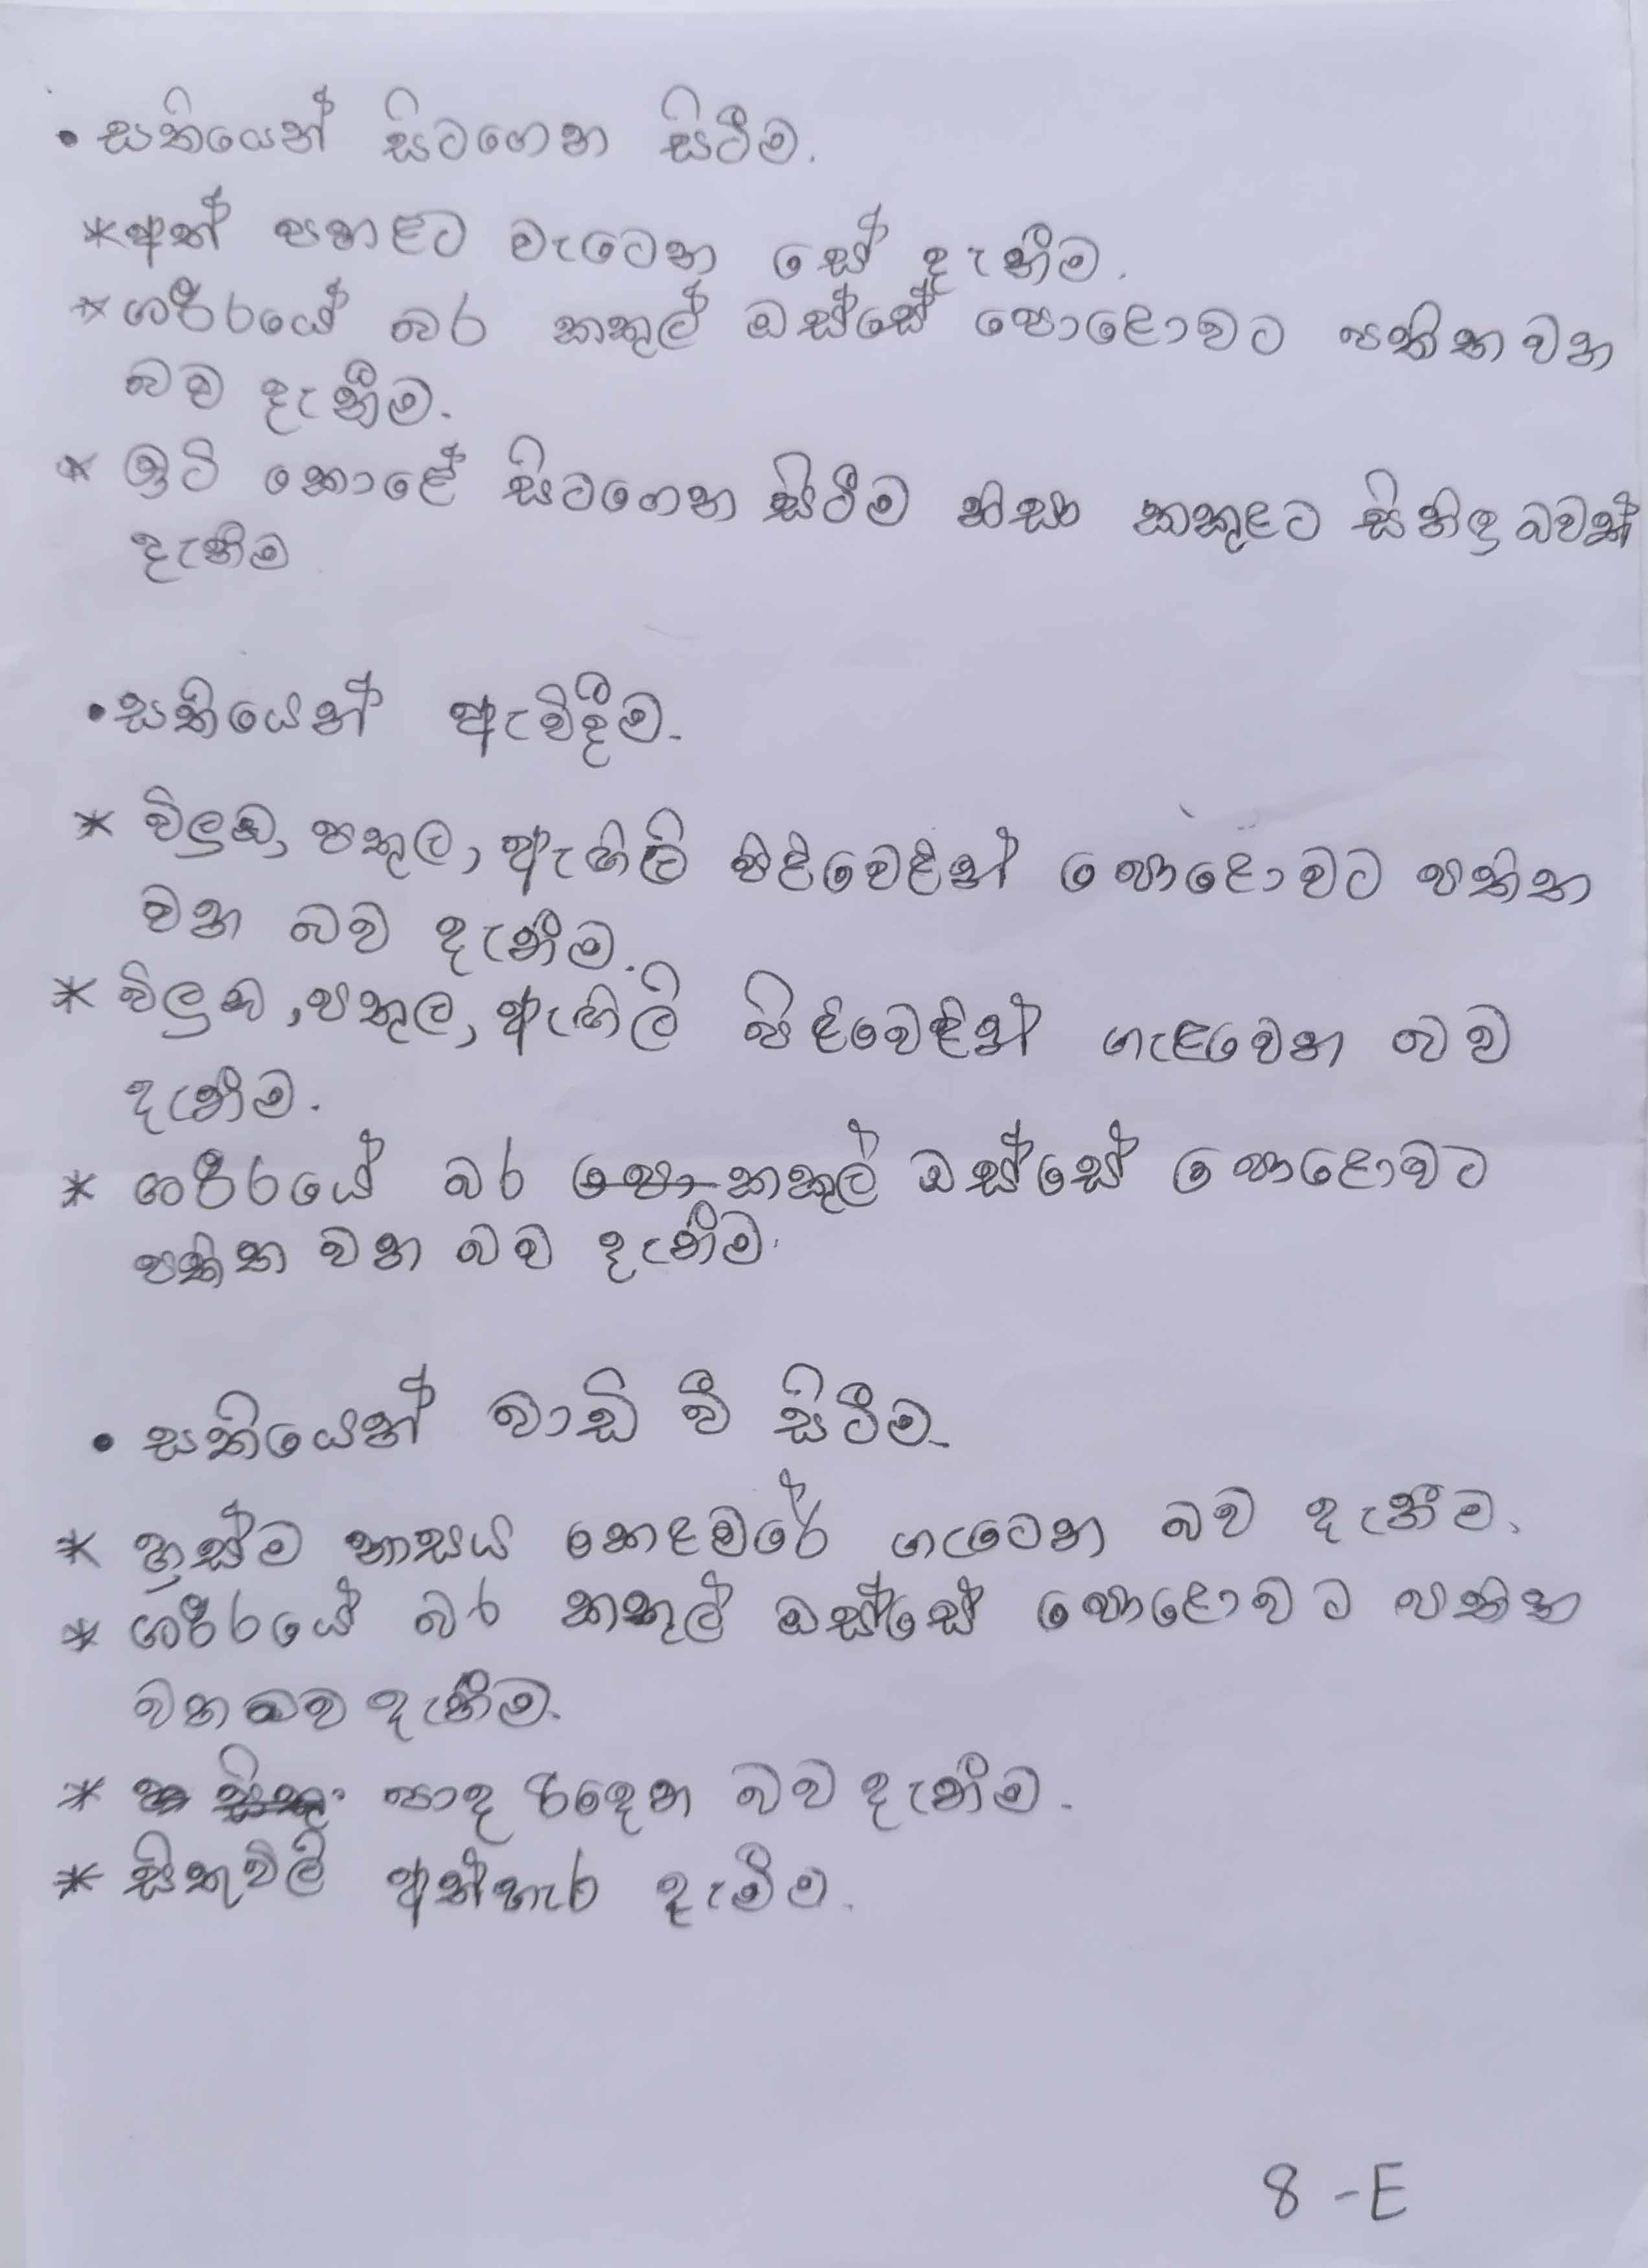 • සතියෙන් සිටගෙන සිටීම.
* අත් පහළට වැටෙන සේ දැනීම.
* ශරීරයේ බර කකුල් ඔස්සේ පොළොවට පතිත වන
බව දැනීම.
* ඉටි කොළේ සිටගෙන සිටීම නිසා කකුළට සිනිඳු බවක්
දැනීම
• සතියෙන් ඇවිදීම.
* විලුඹ, පතුල, ඇඟිලි පිළිවෙළින් පොළොවට පතිත
වන බව දැනීම.
* විලුඹ, පතුල, ඇඟිලි පිළිවෙළින් ගැළවෙන බව
දැනීම.
* ශරීරයේ බර කකුල් ඔස්සේ පොළොවට
පතිත වන බව දැනීම.
• සතියෙන් වාඩි වී සිටීම.
* හුස්ම නාසය කෙළවරේ ගැටෙන බව දැනීම.
* ශරීරයේ බර කකුල් ඔස්සේ පොළොවට පතිත
වන බව දැනීම.
* පාද රිදෙන බව දැනීම.
* සිතුවිලි අත්හැර දැමීම.
8 - E